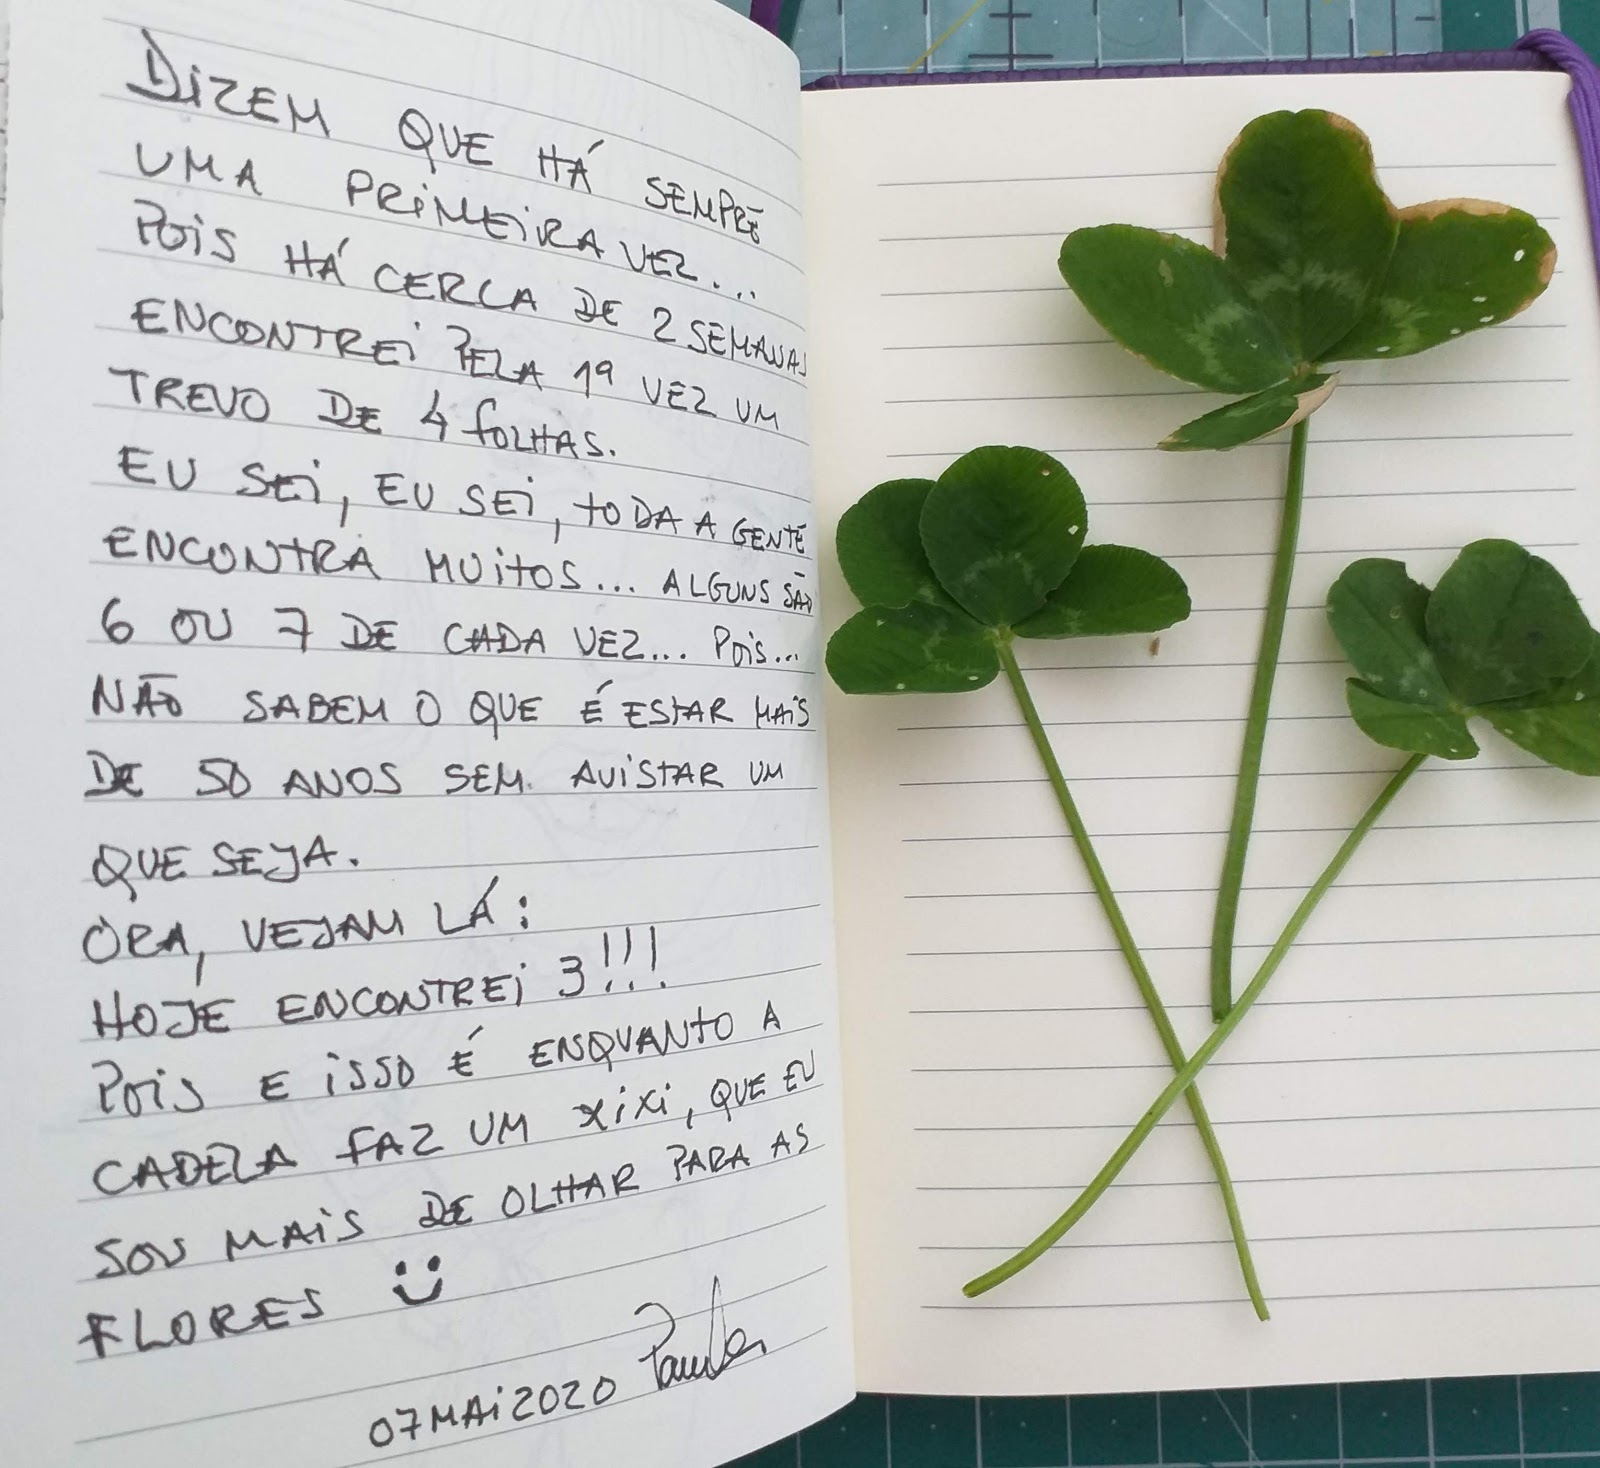 DIZEM QUE HÁ SEMPRE
UMA PRIMEIRA VEZ...
POIS HÁ CERCA DE 2 SEMANAS
ENCONTREI PELA 1ª VEZ UM
TREVO DE 4 FOLHAS.
EU SEI, EU SEI, TODA A GENTE
ENCONTRA MUITOS... ALGUNS SÃO
6 OU 7 DE CADA VEZ... POIS...
NÃO SABEM O QUE É ESTAR MAIS
DE 50 ANOS SEM AVISTAR UM
QUE SEJA.
ORA, VEJAM LÁ:
HOJE ENCONTREI 3!!!
POIS E ISSO É ENQUANTO A
CADELA FAZ UM XIXI, QUE EU
SOU MAIS DE OLHAR PARA AS
FLORES
07 MAI 2020